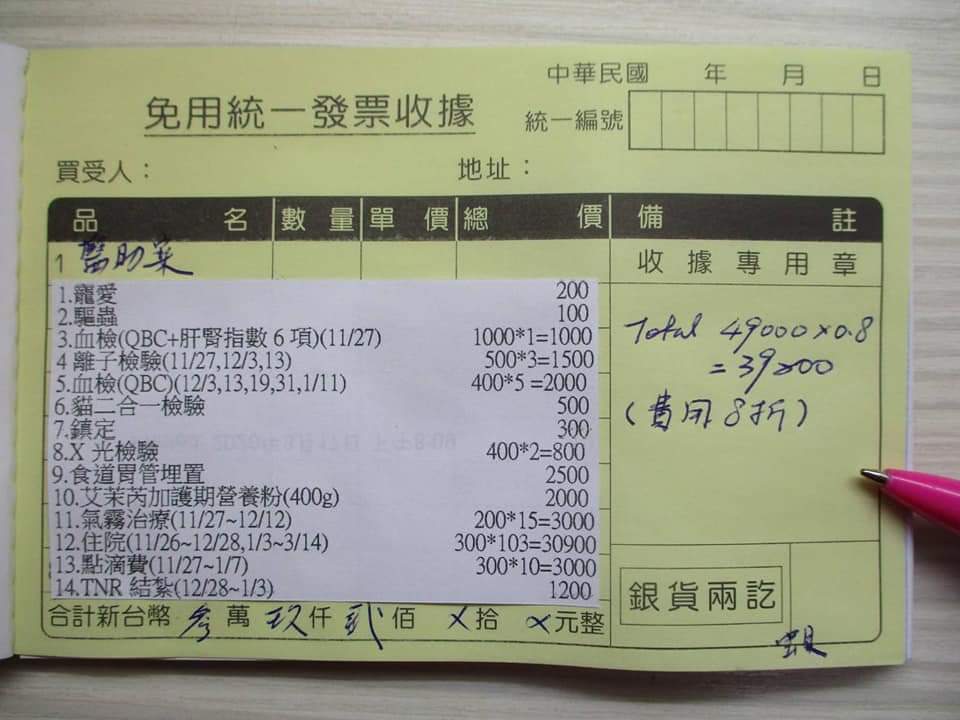 中華民國 年 月 日
免用統一發票收據
統一編號
買受人： 地址：
品 名 數 量 單 價 總 價 備 註
1 醫助案
收據專用章
1.寵愛 200
2.驅蟲 100
3.血檢(QBC+肝腎指數6項)(11/27) 1000*1=1000
4 離子檢驗(11/27,12/3,13) 500*3=1500
5.血檢(QBC)(12/3,13,19,31,1/11) 400*5 =2000
6.貓二合一檢驗 500
7.鎮定 300
8.X 光檢驗 400*2=800
9.食道胃管埋置 2500
10.艾茉芮加護期營養粉(400g) 2000
11.氣霧治療(11/27~12/12) 200*15=3000
12.住院(11/26~12/28,1/3~3/14) 300*103=30900
13.點滴費(11/27~1/7) 300*10=3000
14.TNR 結紮(12/28~1/3) 1200
Total 49000×0.8
=39200
(費用8折)
合計新台幣 參 萬 玖 仟 貳 佰 X 拾 X 元整
銀貨兩訖